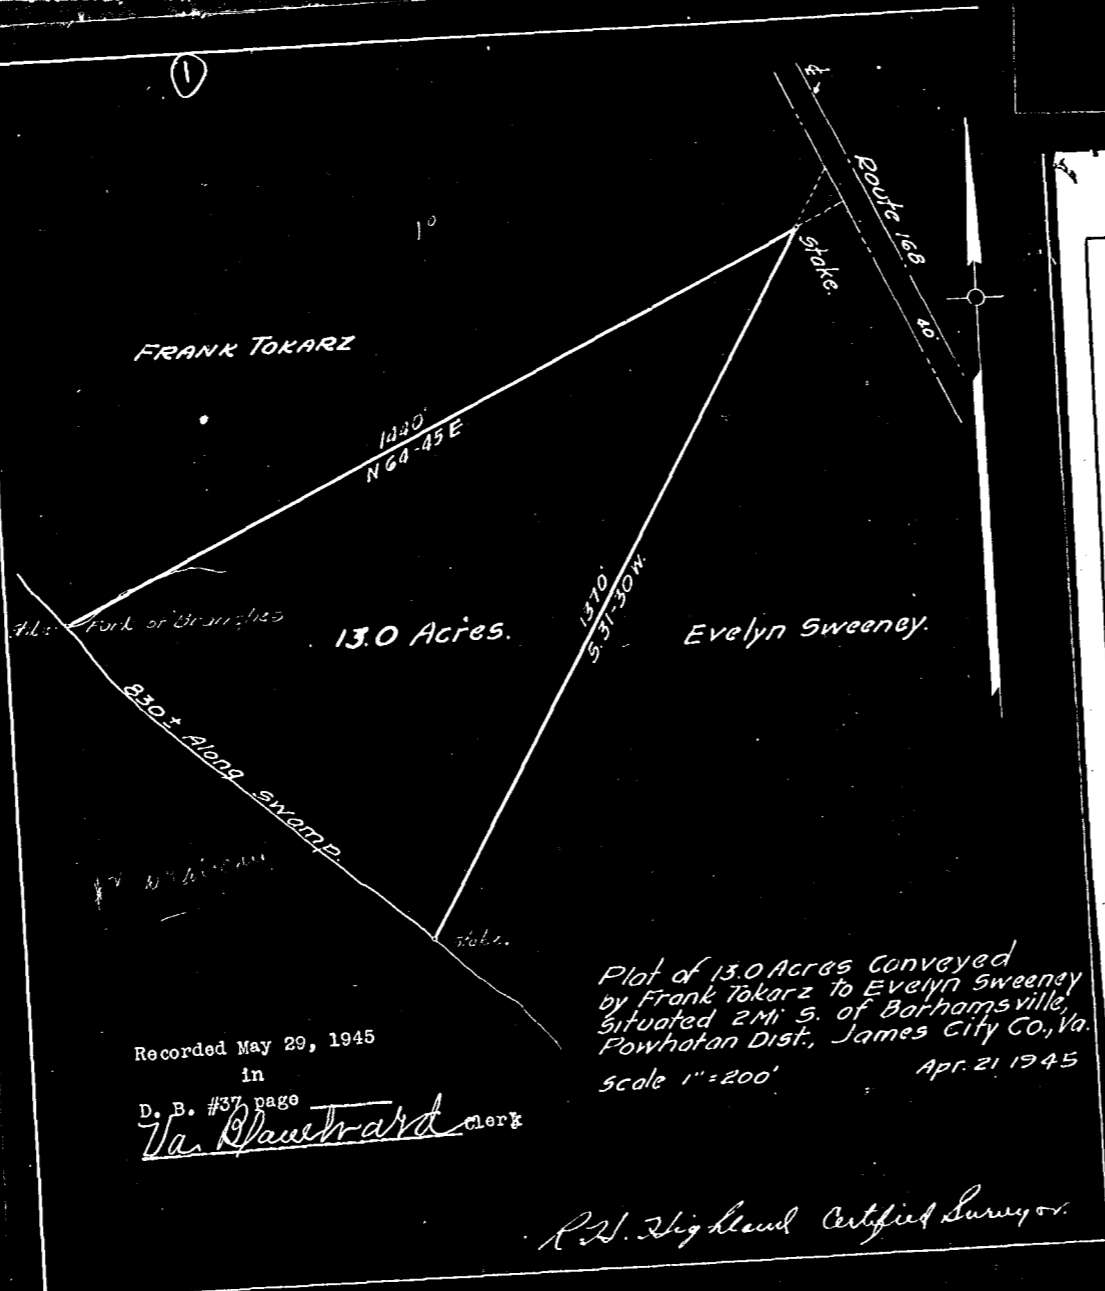 1
1°
Route 168
40'
Stake.
FRANK TOKARZ
1440'
N 64-45 E
1370'
S. 31-30 W.
Fork of Branches
13.0 Acres.
Evelyn Sweeney.
830± Along swamp.
Stake.
Plat of 13.0 Acres Conveyed
by Frank Tokarz to Evelyn Sweeney
Situated 2 Mi S. of Barhamsville,
Powhatan Dist., James City Co., Va.
Scale 1"=200'
Apr. 21 1945
Recorded May 29, 1945
in
D. B. #37 page
Va. Clerk
R.H. Highland Certified Surveyor.